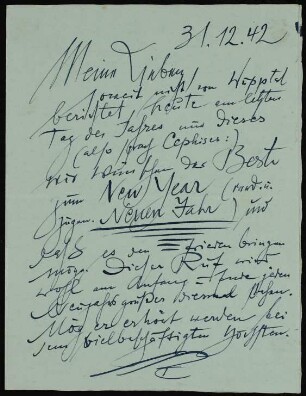 31.12.42
Meine Lieben
soweit nicht von
berichtet, heute am letzten
Tag des Jahres und dieses
(also sprach Cephises:)
wir wünschen das Beste
zum New Year (
Neuen Jahr) und
daß es den Frieden bringen
möge. Dieser Ruf wird
wohl am Anfang – Ende jeden
Neujahrsgrußes diesmal stehen.
Mög er erhört werden bei
dem vielbeschäftigten Höchsten.